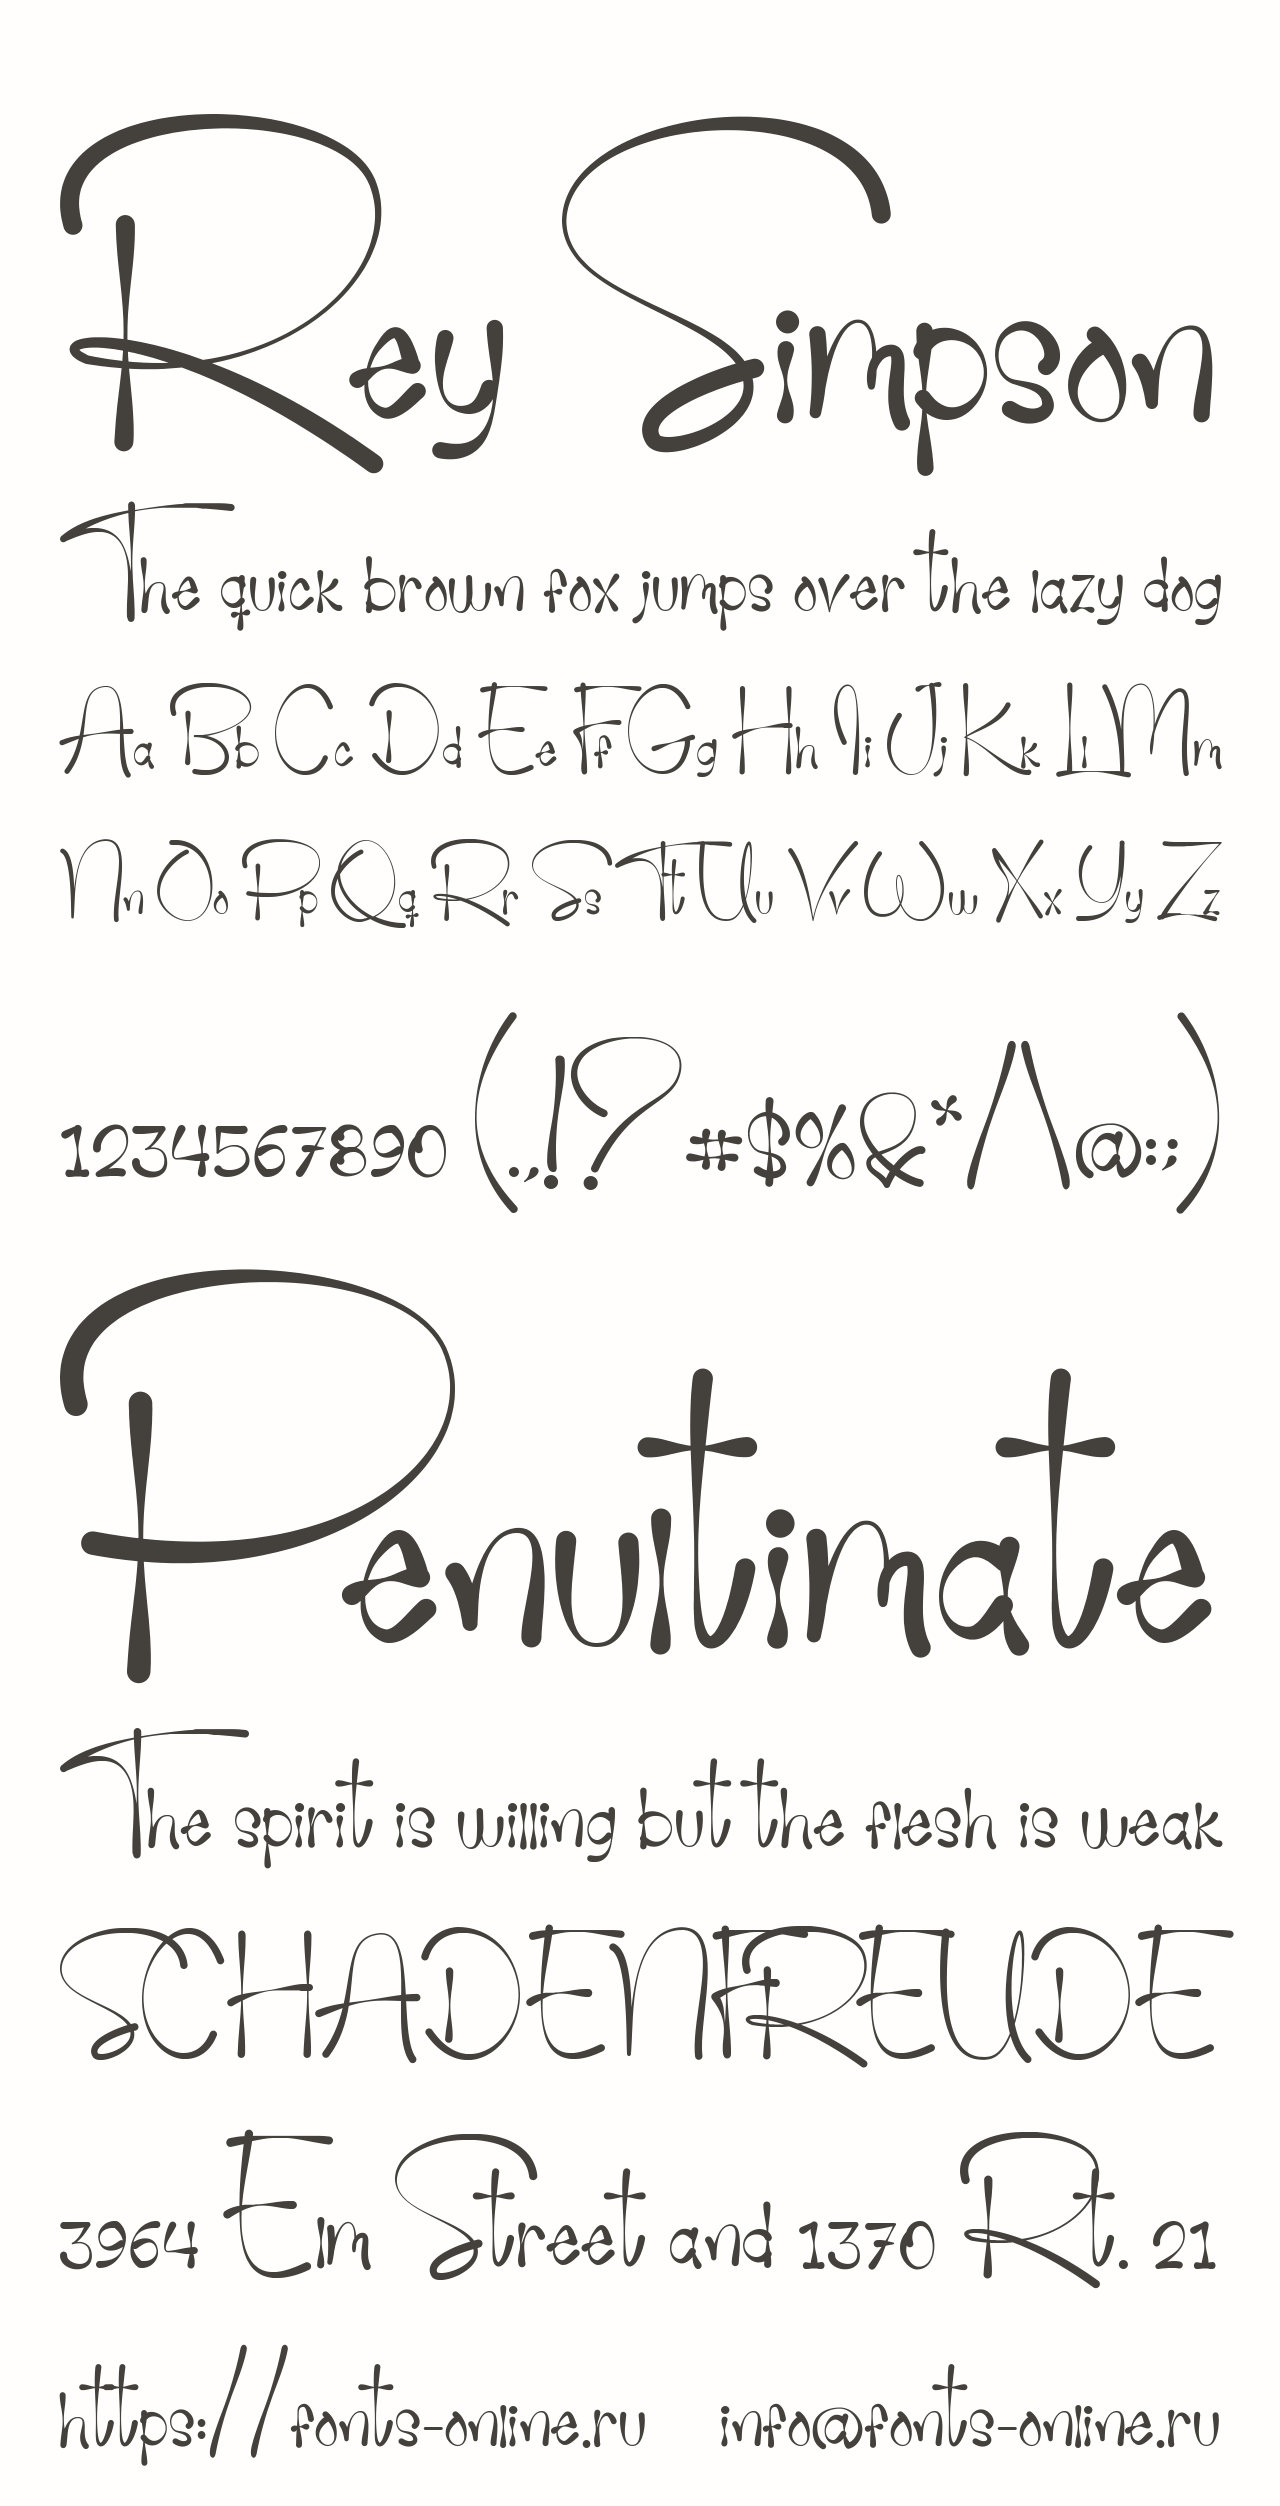 Rey Simpson
The quick brown fox jumps over the lazy dog
Aa Bb Cc Dd Ee Ff Gg Hh Ii Jj Kk Ll Mm
Nn Oo Pp Qq Rr Ss Tt Uu Vv Ww Xx Yy Zz
1234567890 (.,!? #$%&* /\ @:;)
Penultimate
The spirit is willing but the flesh is weak
SCHADENFREUDE
3964 Elm Street and 1370 Rt. 21
https://fonts-online.ru info@fonts-online.ru